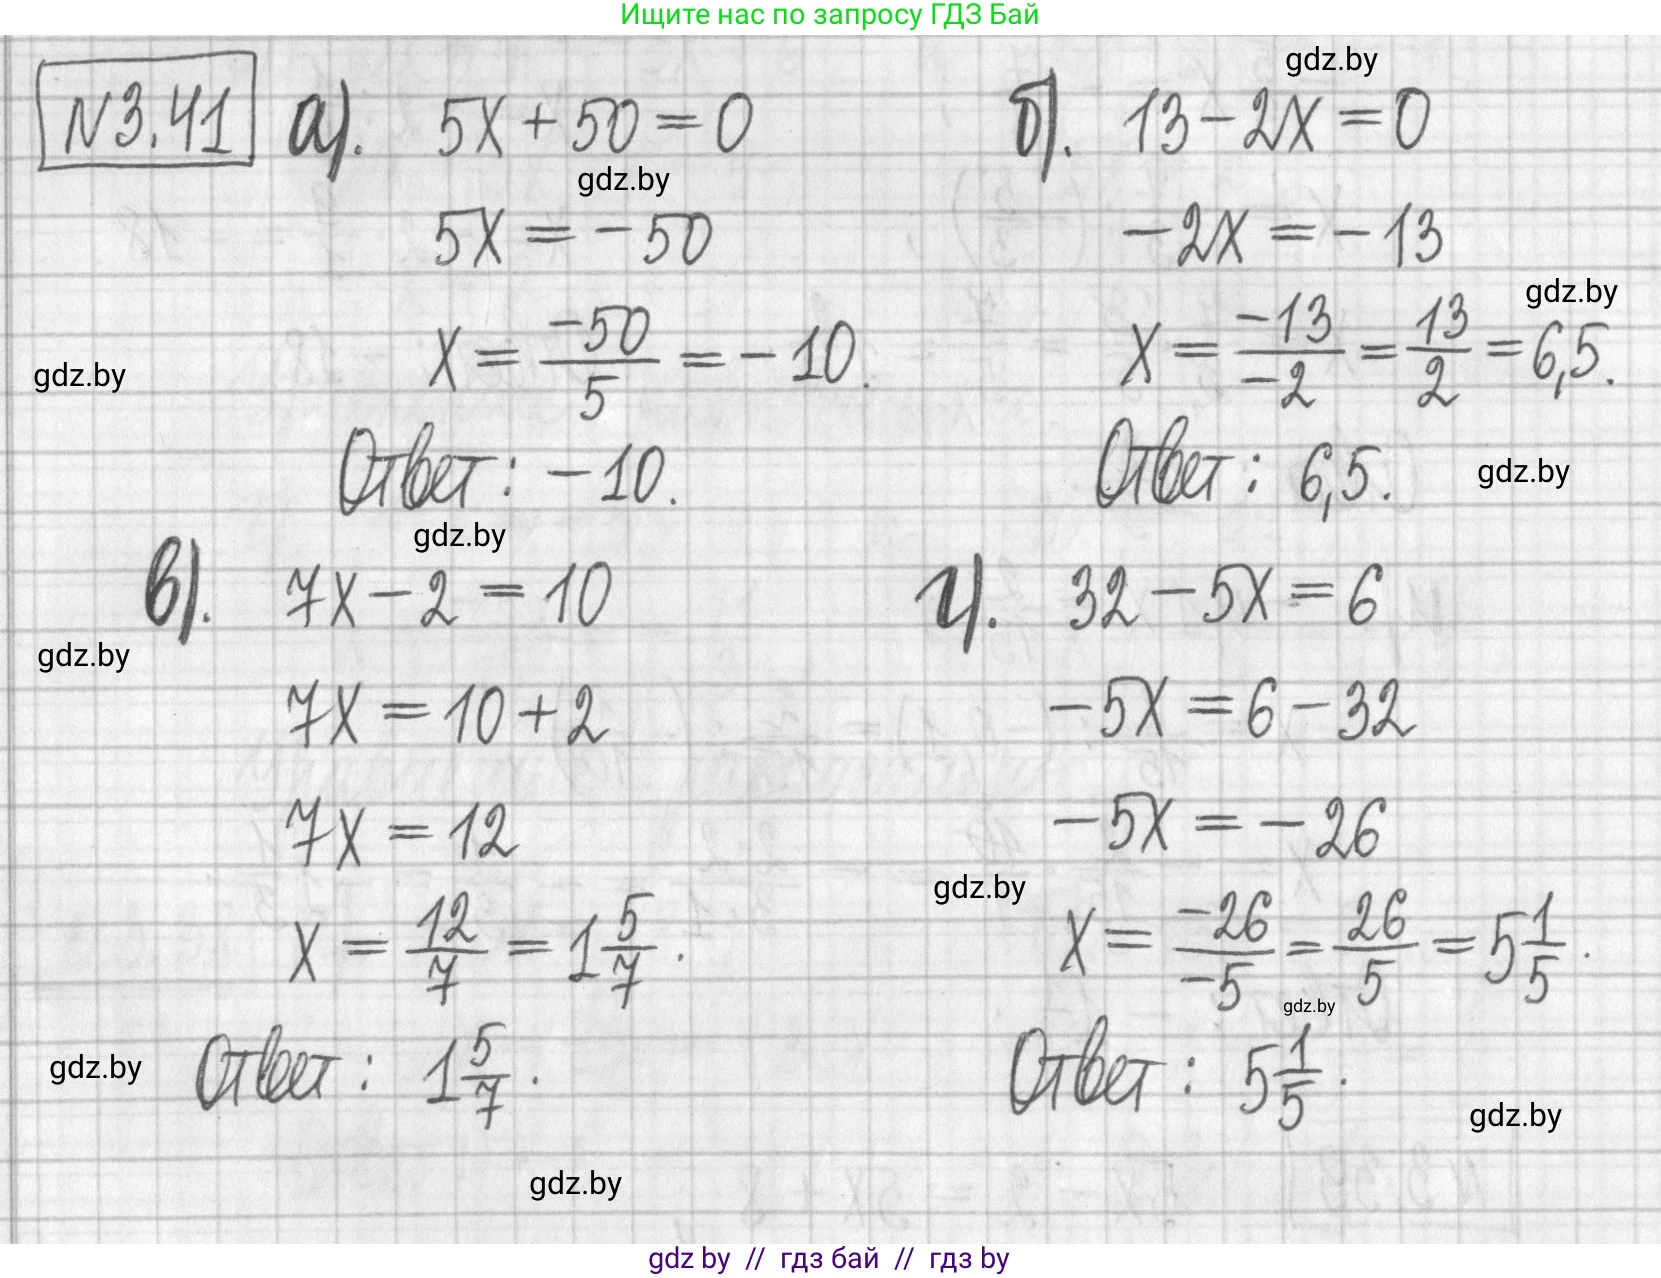 Ищите нас по запросу ГДЗ Бай
gdz.by
№3.41 а). 5x + 50 = 0
gdz.by
5x = -50
x = -50/5 = -10.
gdz.by
Ответ: -10.
gdz.by
б). 13 - 2x = 0
-2x = -13
gdz.by
x = -13/-2 = 13/2 = 6,5.
Ответ: 6,5.
gdz.by
в). 7x - 2 = 10
gdz.by
7x = 10 + 2
7x = 12
x = 12/7 = 1 5/7.
gdz.by
Ответ: 1 5/7.
gdz.by
г). 32 - 5x = 6
-5x = 6 - 32
-5x = -26
gdz.by
x = -26/-5 = 26/5 = 5 1/5.
gdz.by
Ответ: 5 1/5.
gdz.by
gdz by // гдз бай // гдз by